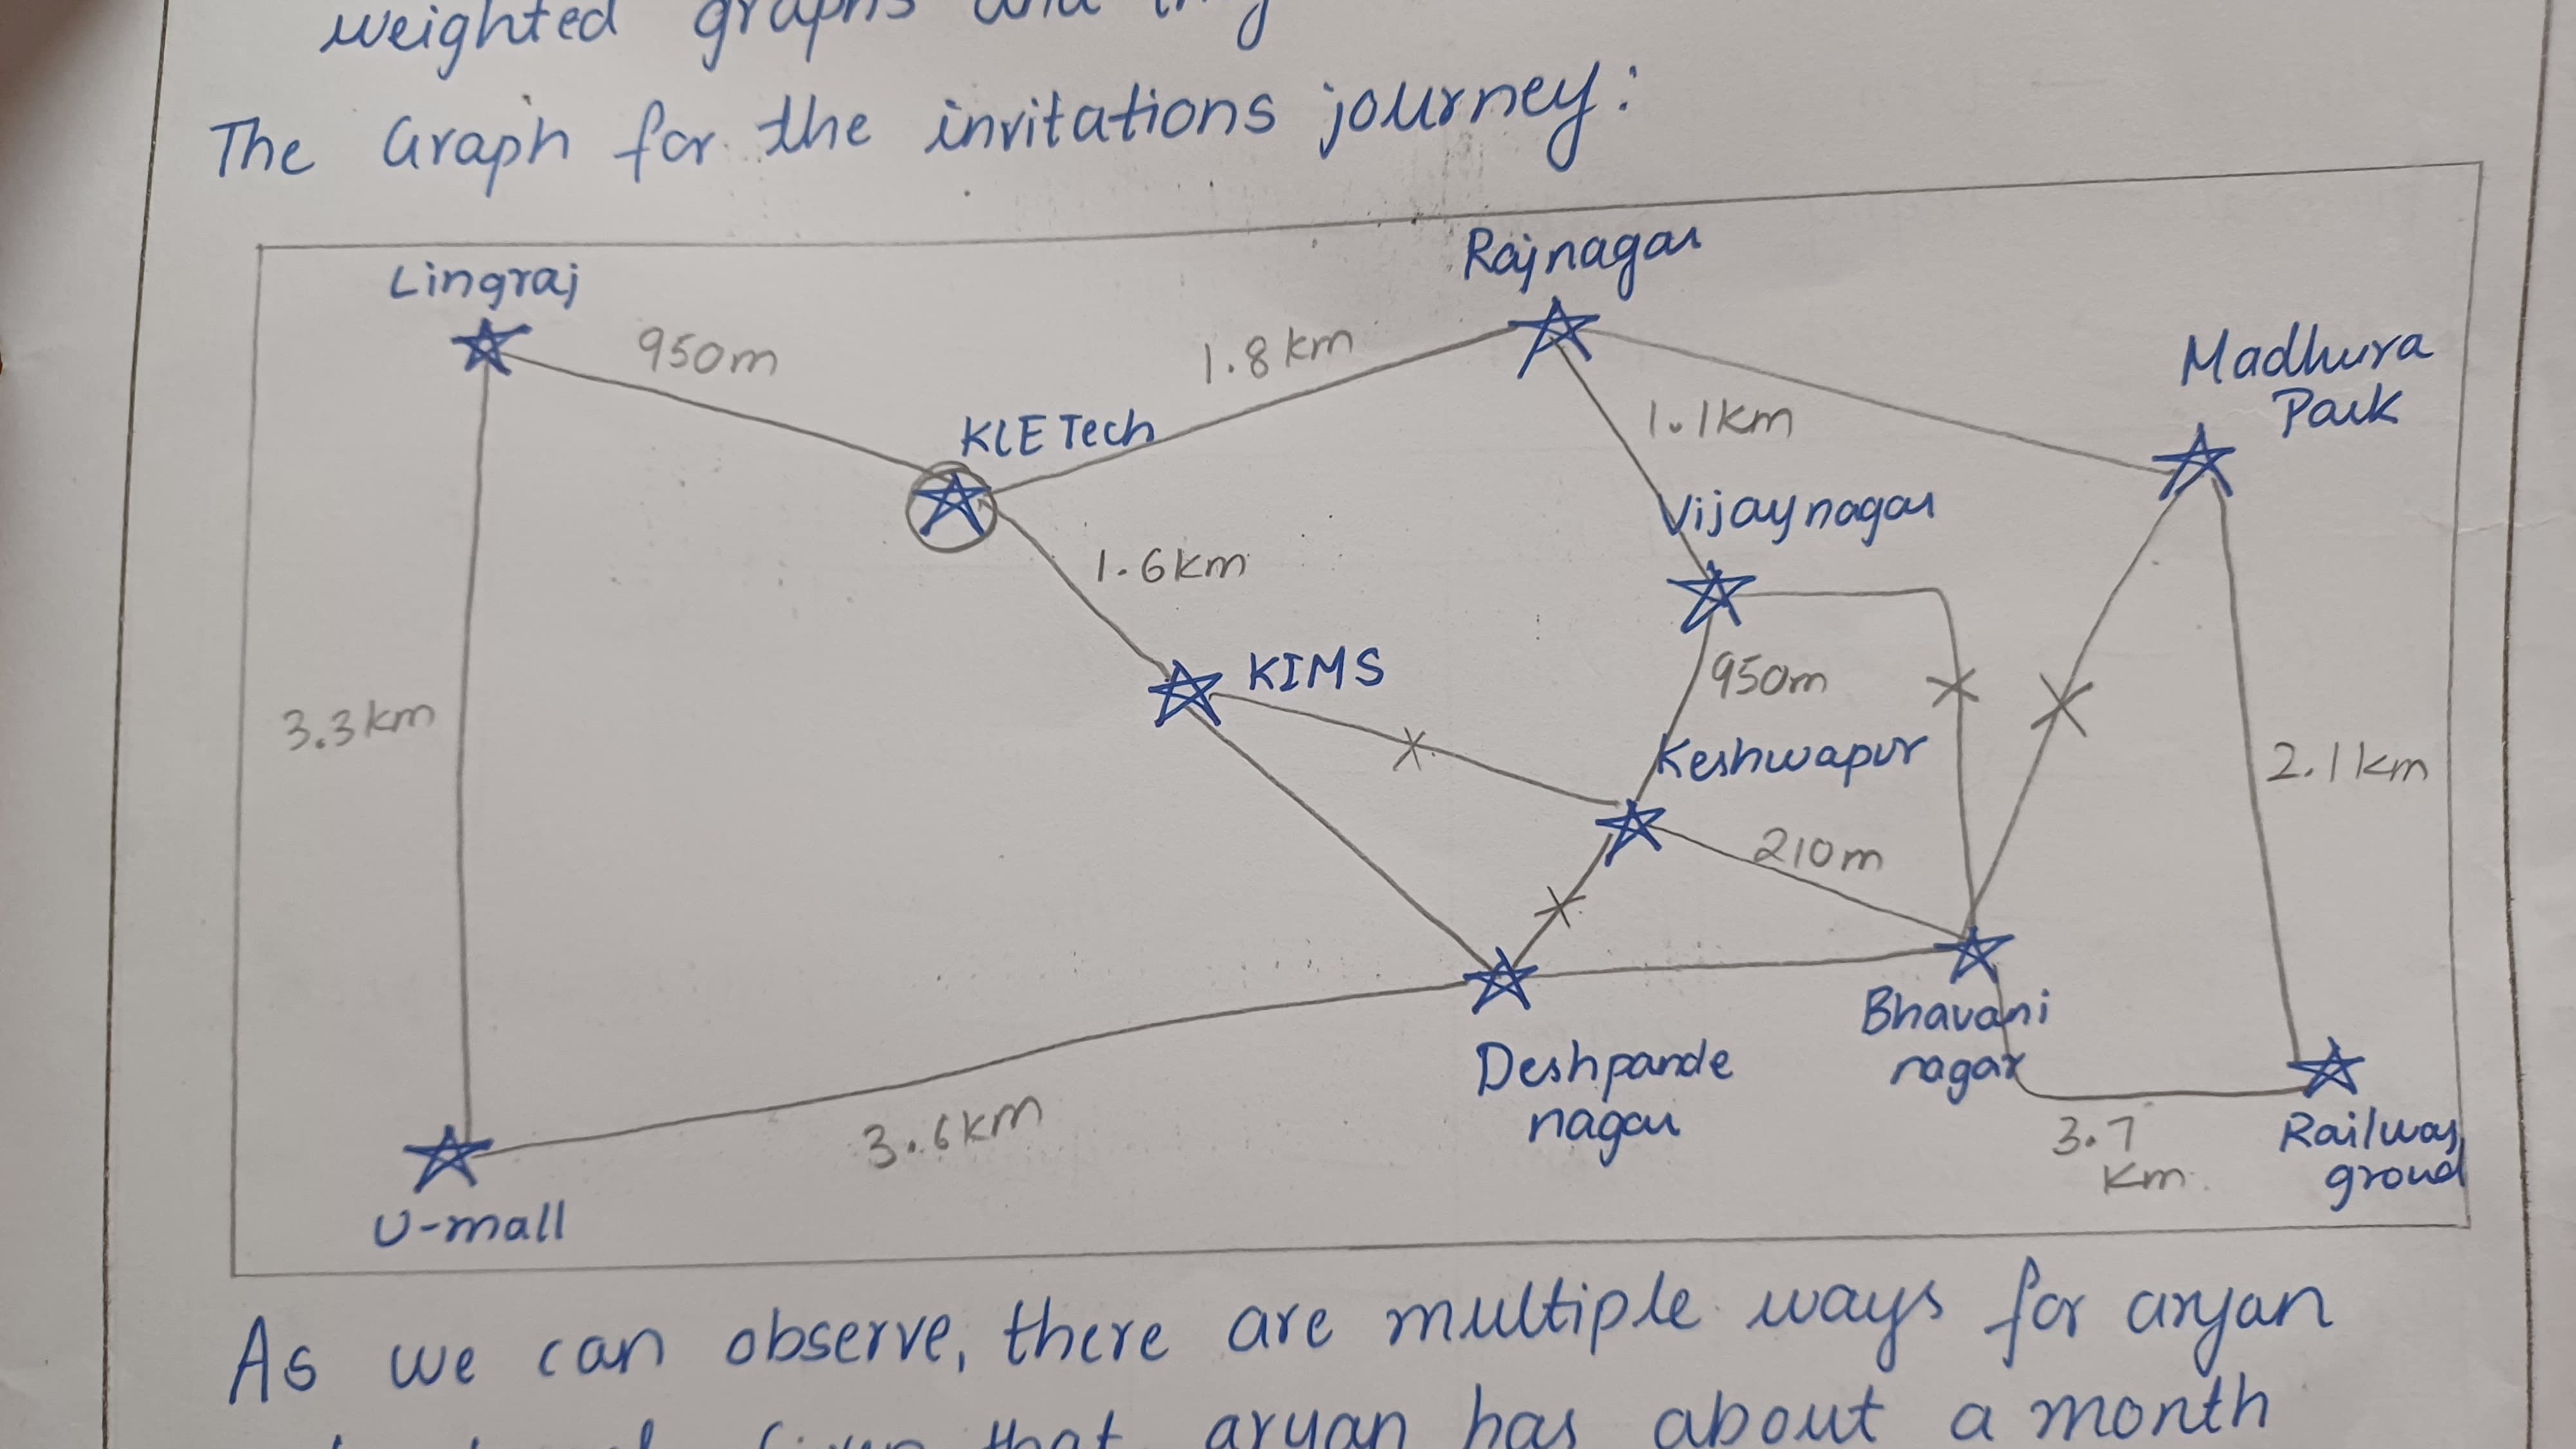 weighted graphs and
The Graph for the invitations journey:
Lingraj
Rajnagar
950m
1.8 km
Madhura
Park
KLE Tech
1.1km
Vijaynagar
1.6km
KIMS
950m
3.3km
Keshwapur
2.1km
210m
Bhavani
nagar
Deshpande
nagar
3.6km
3.7
km.
Railway
groud
U-mall
As we can observe, there are multiple ways for aryan
that aryan has about a month